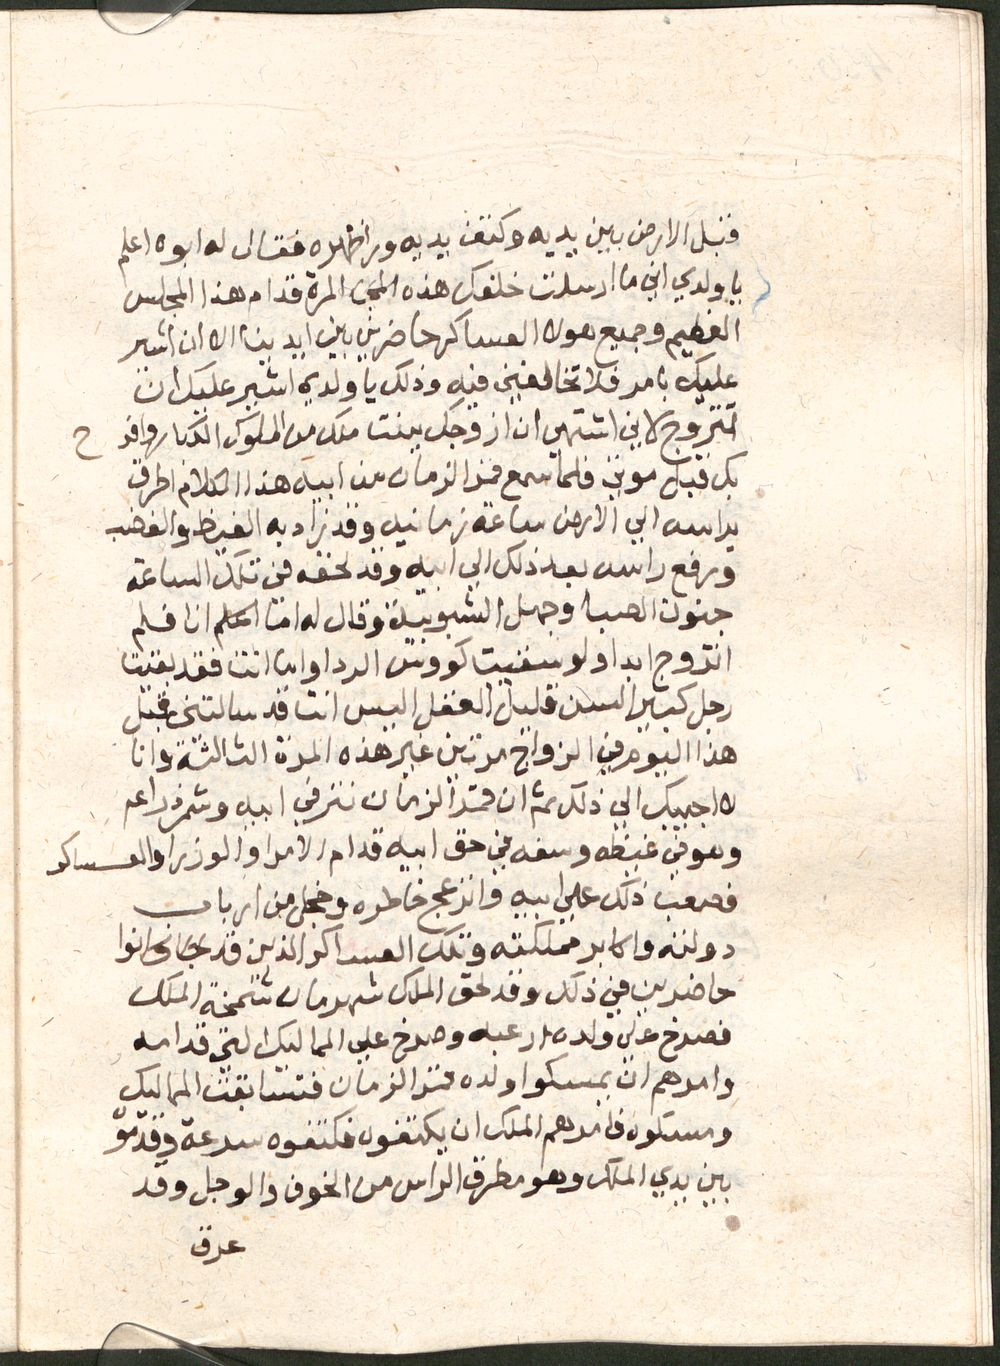 فقبل الارض بين يديه وكتف يديه ورا ظهره فقال له ابوه اعلم
يا ولدي اني ما ارسلت خلفك هذه المرة قدام هذا المجلس
العظيم وجميع هولا العساكر حاضرين بين ايدينا الا ان اشير
عليك بامر فلا تخالفني فيه وذلك يا ولدي اشير عليك ان
تتزوج لاني اشتهي ان ازوجك ببنت ملك من الملوك الكبار وافر ح
بك قبل موتي فلما سمع قمر الزمان من ابيه هذا الكلام اطرق
براسه الي الارض ساعة زمانيه وقد زاد به الغيظ والغضب
ورفع راسه بعد ذلك الي ابيه وقد لحقه في تلك الساعة
جنون الصبا وجهل الشبوبية وقال له اما اعلم انا فلم
اتزوج ابدا ولو سقيت كووس الردا واما انت فقد بقيت
رجل كبير السن قليل العقل اليس انت قد سالتني قبل
هذا اليوم في الزواج مرتين غير هذه المرة الثالثة وانا
لا اجيبك الي ذلك ثم ان قمر الزمان نتر في ابيه وشمر دراعه
وهو في غيظه وسفه في حق ابيه قدام الامرا والوزرا والعساكر
فصعب ذلك علي ابيه وانزعج خاطره وخجل من ارباب
دولته واكابر مملكته وتلك العساكر الذين قد كانوا
حاضرين في ذلك وقد لحق الملك شهرمان شمخة الملك
فصرخ علي ولده ارعبه وصرخ علي المماليك التي قدامه
وامرهم ان يمسكوا ولده قمر الزمان فتسابقت المماليك
ومسكوه فامرهم الملك ان يكتفوه فكتفوه سرعة وقدموه
بين يدي الملك وهو مطرق الراس من الخوف والوجل وقد
عرق